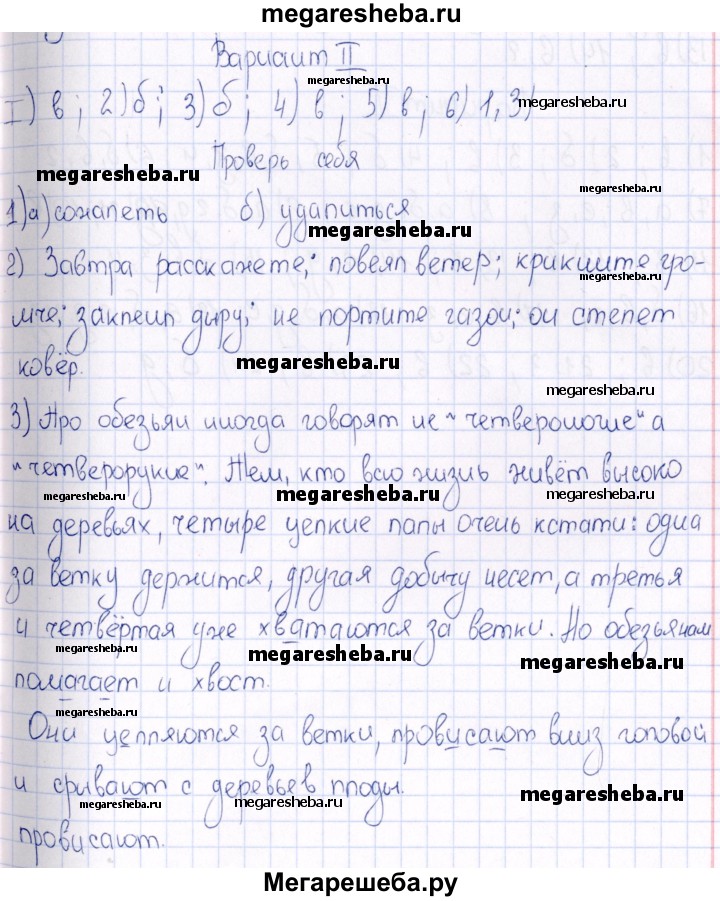 megaresheba.ru
Вариант II
megaresheba.ru
I) в; 2) б; 3) б; 4) в; 5) в; 6) 1, 3)
megaresheba.ru
Проверь себя
megaresheba.ru
megaresheba.ru
1) а) сожалеть б) удалиться
megaresheba.ru
2) Завтра расскажете; повеял ветер; крикните гро-
megaresheba.ru
мче; заклеил дыру; не портите газон; он стелет
megaresheba.ru
megaresheba.ru
ковёр.
megaresheba.ru
3) Про обезьян иногда говорят не "четвероногие" а
"четверорукие". Тем, кто всю жизнь живёт высоко
megaresheba.ru
megaresheba.ru
megaresheba.ru
на деревьях, четыре цепкие лапы очень кстати: одна
за ветку держится, другая добычу несет, а третья
и четвёртая уже хватаются за ветки. Но обезьянам
megaresheba.ru
megaresheba.ru
megaresheba.ru
помагает и хвост.
megaresheba.ru
Они цепляются за ветки, провисают вниз головой
и срывают с деревьев плоды.
megaresheba.ru
megaresheba.ru
megaresheba.ru
провисают.
Мегарешеба.ру